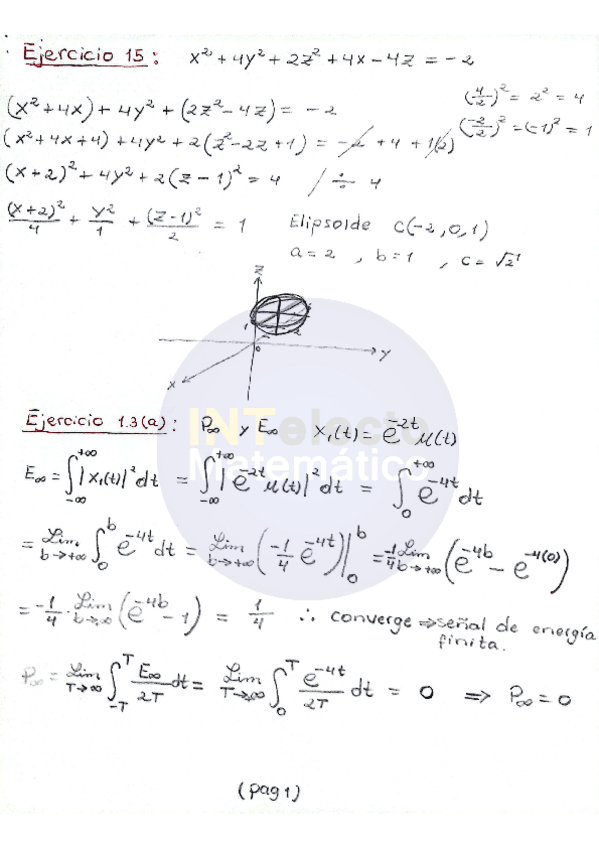 Ejercicio 15: x² + 4y² + 2z² + 4x - 4z = -2
(x² + 4x) + 4y² + (2z² - 4z) = -2
(4/2)² = 2² = 4
(x² + 4x + 4) + 4y² + 2(z² - 2z + 1) = -2 + 4 + 1(2)
(-2/2)² = (-1)² = 1
(x+2)² + 4y² + 2(z-1)² = 4 / ÷ 4
(x+2)²/4 + y²/1 + (z-1)²/2 = 1 Elipsolde C(-2,0,1)
a = 2 , b = 1 , c = √2
z
1
2
0
y
x
INTelecto
Matemático
Ejercicio 1.3(a): P∞ y E∞ x₁(t) = e^{-2t} μ(t)
E∞ = ∫_{-∞}^{+∞} |x₁(t)|² dt = ∫_{-∞}^{+∞} |e^{-2t} μ(t)|² dt = ∫_0^{+∞} e^{-4t} dt
= Lim_{b→+∞} ∫_0^b e^{-4t} dt = Lim_{b→+∞} (-1/4 e^{-4t})|_0^b = -1/4 Lim_{b→+∞} (e^{-4b} - e^{-4(0)})
= -1/4 · Lim_{b→∞} (e^{-4b} - 1) = 1/4 ∴ converge ⇒ señal de energía
finita.
P∞ = Lim_{T→∞} ∫_{-T}^T E∞/2T dt = Lim_{T→∞} ∫_0^T e^{-4t}/2T dt = 0 ⇒ P∞ = 0
(pag 1)